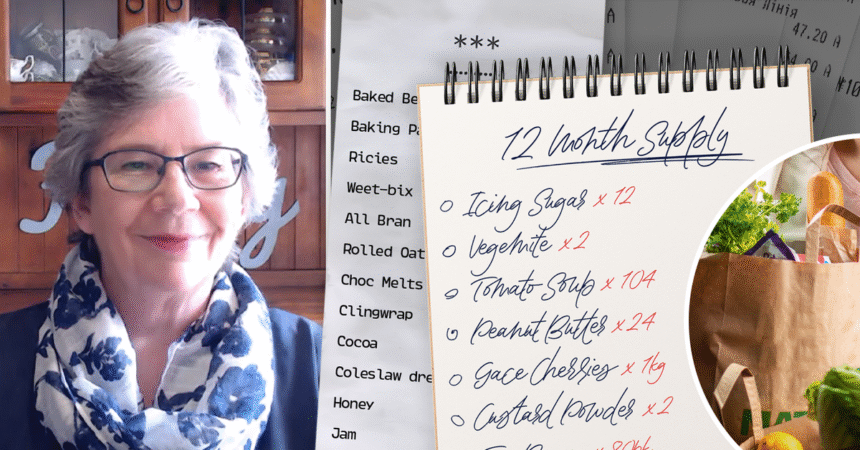 ***
Baked Be
Baking Pa
Ricies
Weet-bix
All Bran
Rolled Oat
Choc Melts
Clingwrap
Cocoa
Coleslaw dre
Honey
Jam
12 Month Supply
Icing Sugar x 12
Vegemite x 2
Tomato Soup x 104
Peanut Butter x 24
Gace Cherries x 1kg
Custard Powder x 2
А
лінія
47.20 А
А